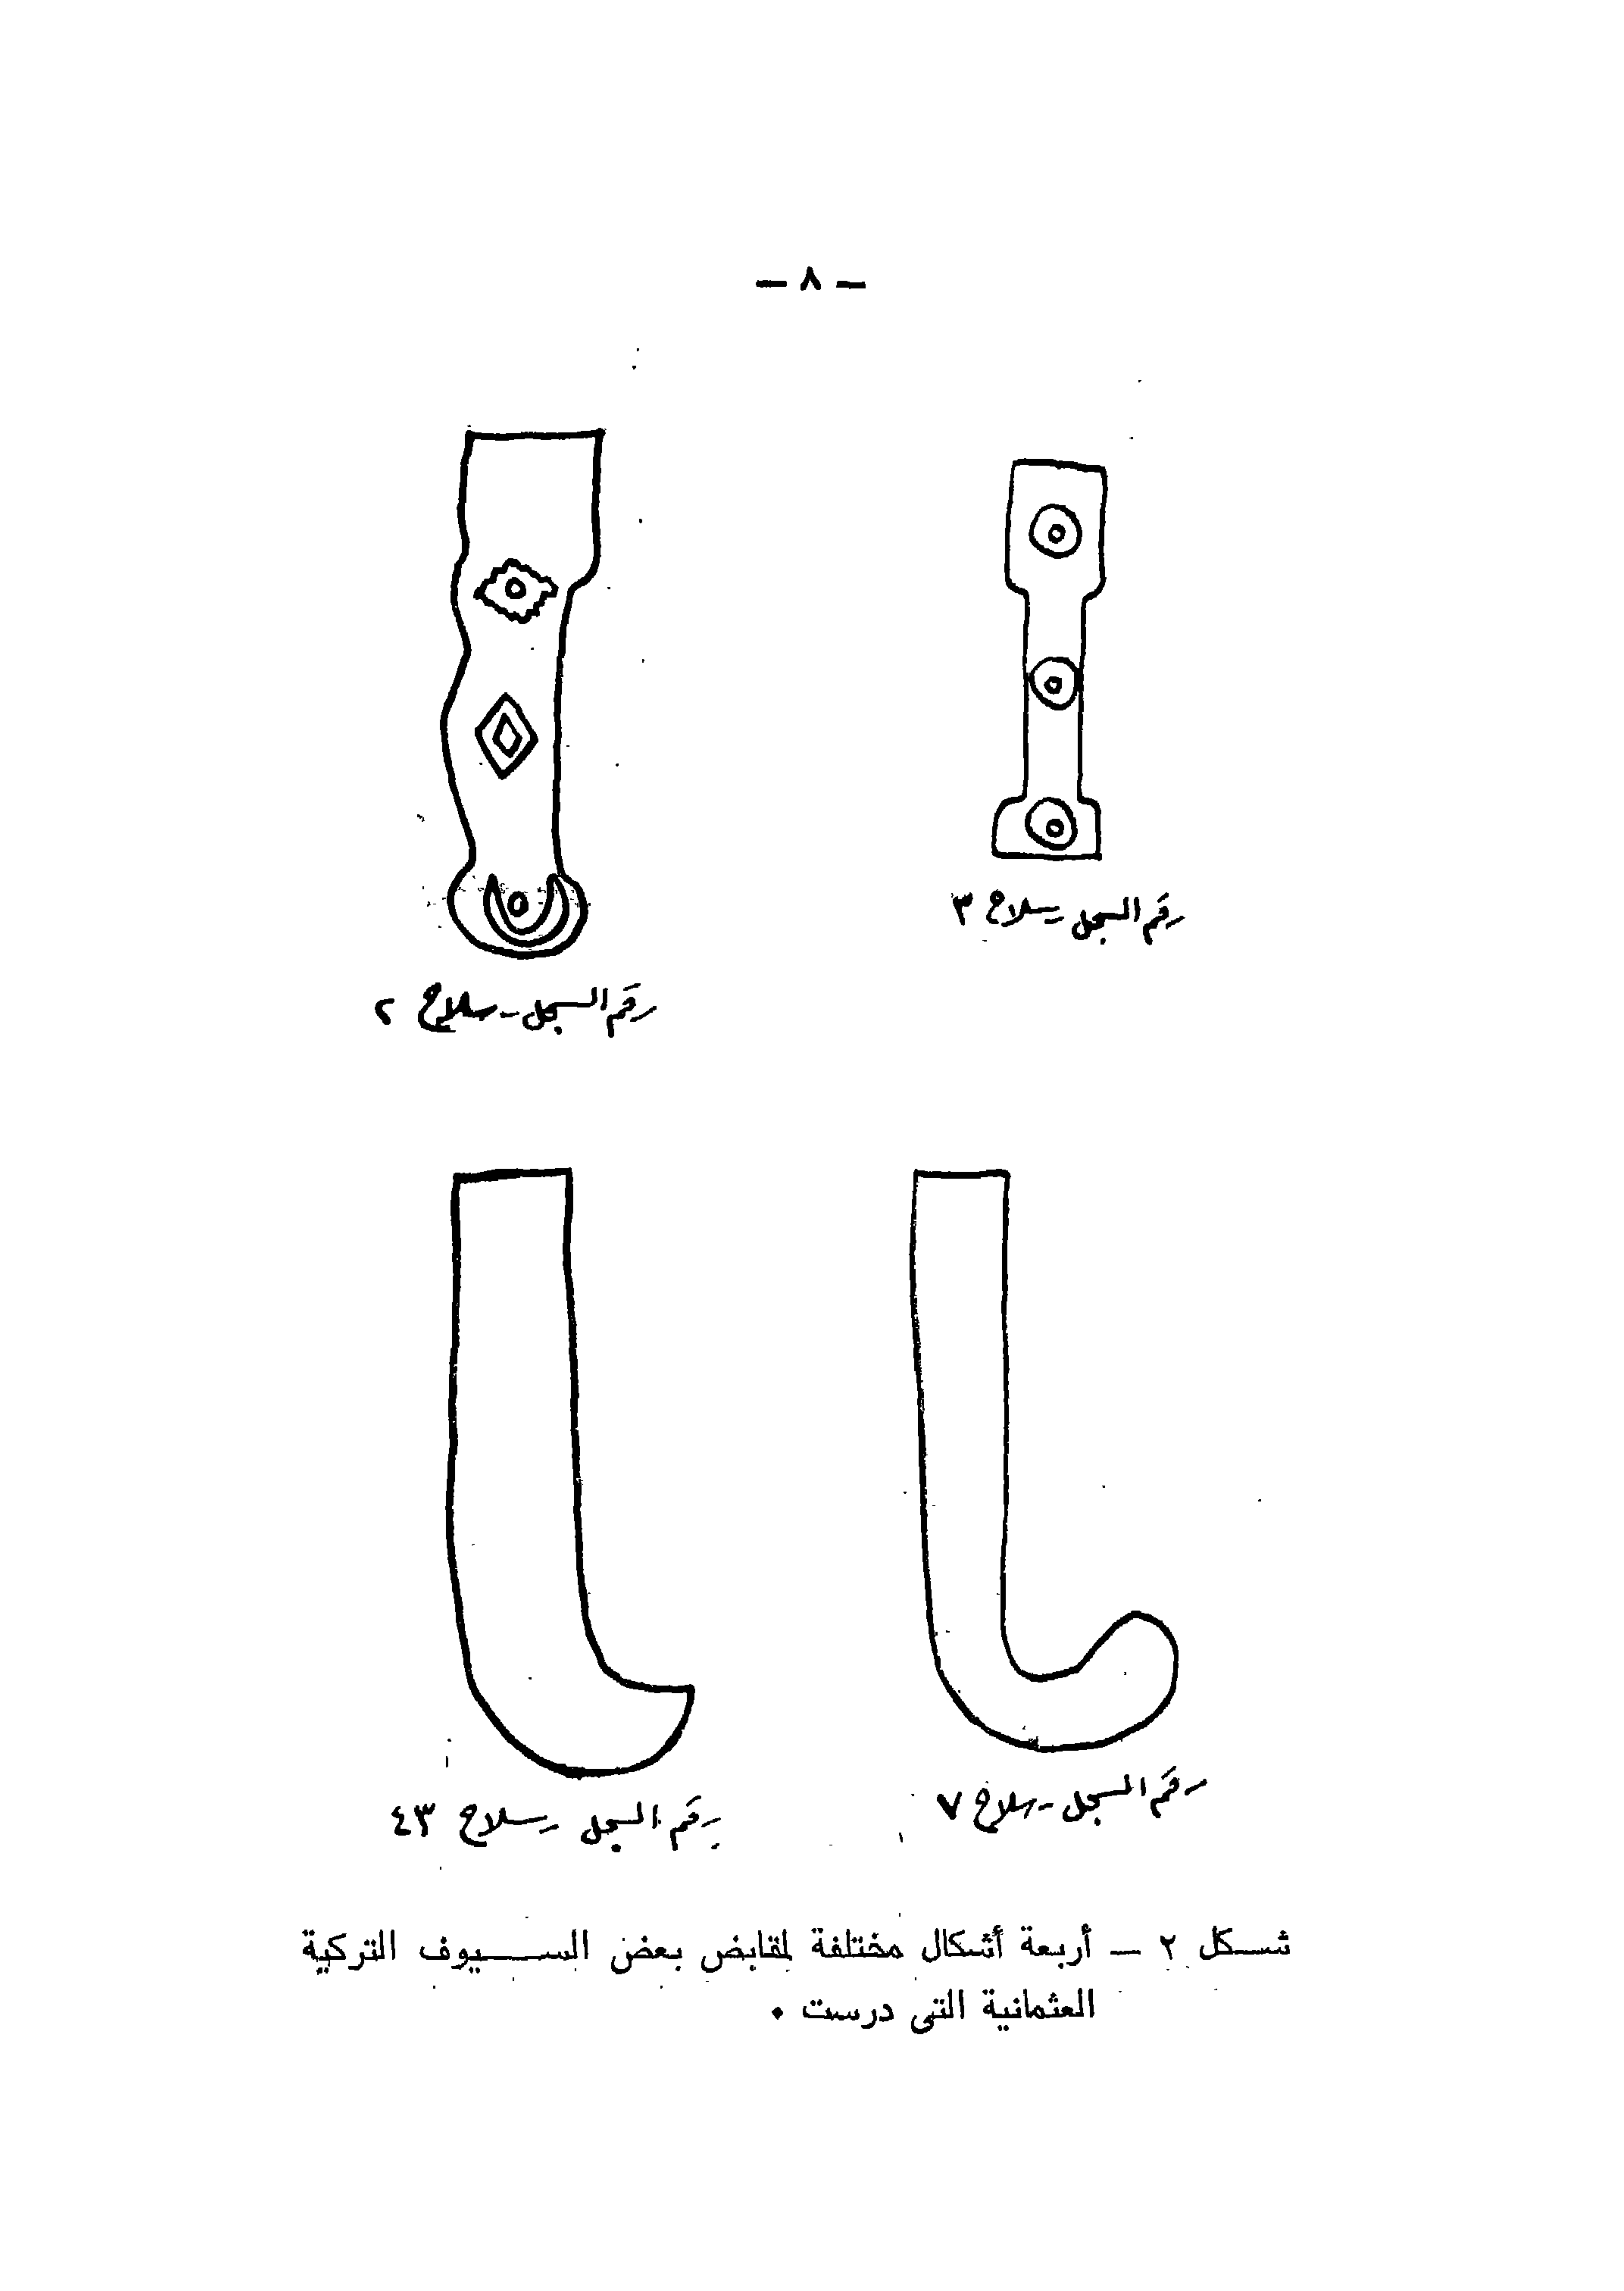 — ٨ —
رقم السجل - سلاح ٣
رقم السجل - سلاح ٢
رقم السجل - سلاح ٧
رقم السجل - سلاح ٤٣
شكل ٢ — أربعة أشكال مختلفة لمقابض بعض السيوف التركية
العثمانية التى درست .